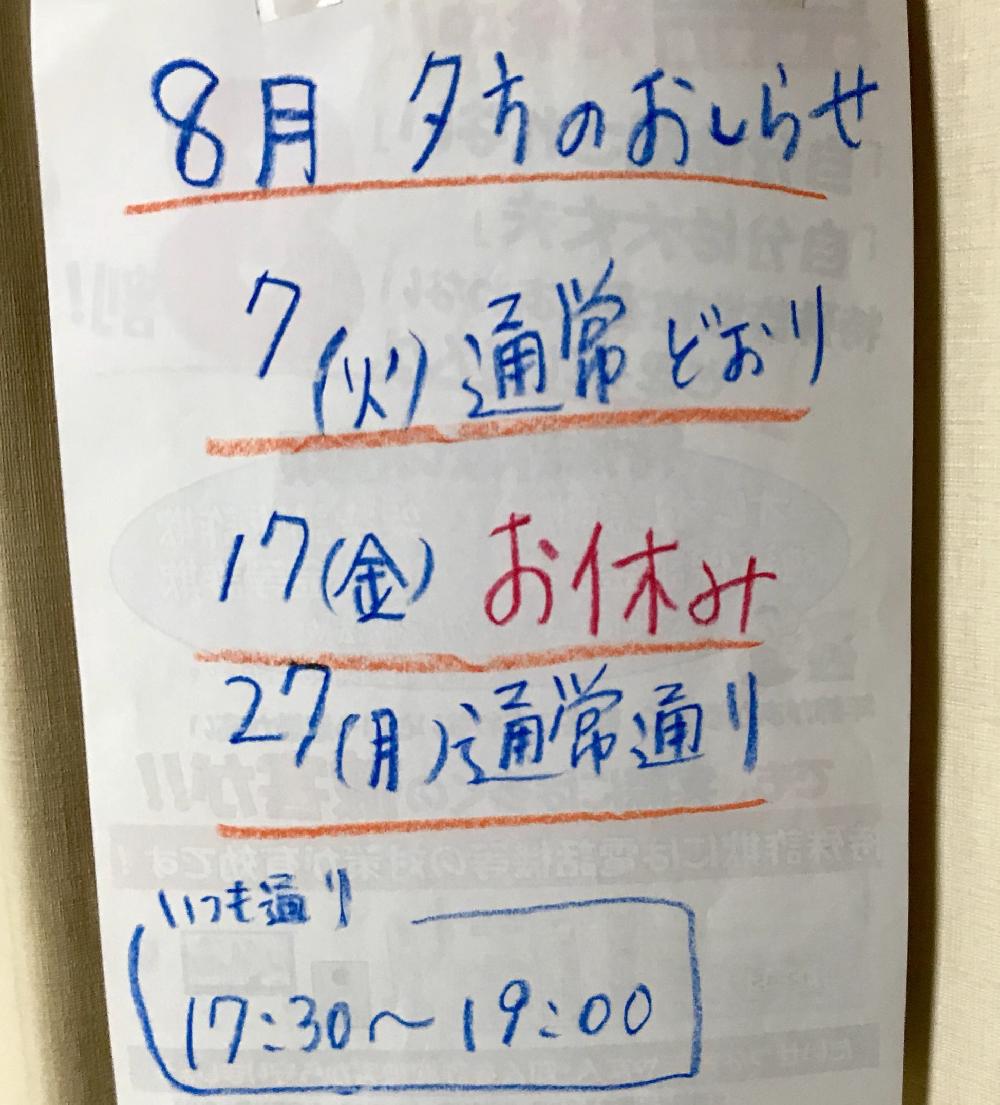 8月 夕方のおしらせ
7(火)通常どおり
17(金) お休み
27(月)通常通り
いつも通り
17:30〜19:00